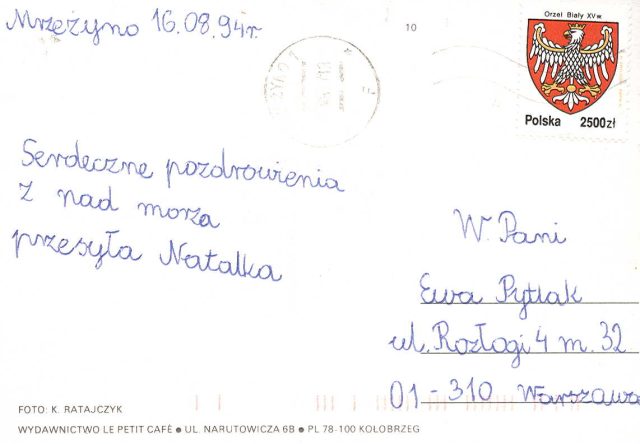 Mrzeżyno 16.08.94r.
10
Orzeł Biały XV w.
Polska 2500zł
Serdeczne pozdrowienia
z nad morza
przesyła Natalka
W. Pani
Ewa Pytlak
ul. Rozłogi 4 m. 32
01-310 Warszawa
FOTO: K. RATAJCZYK
WYDAWNICTWO LE PETIT CAFÈ ● UL. NARUTOWICZA 6B ● PL 78-100 KOŁOBRZEG